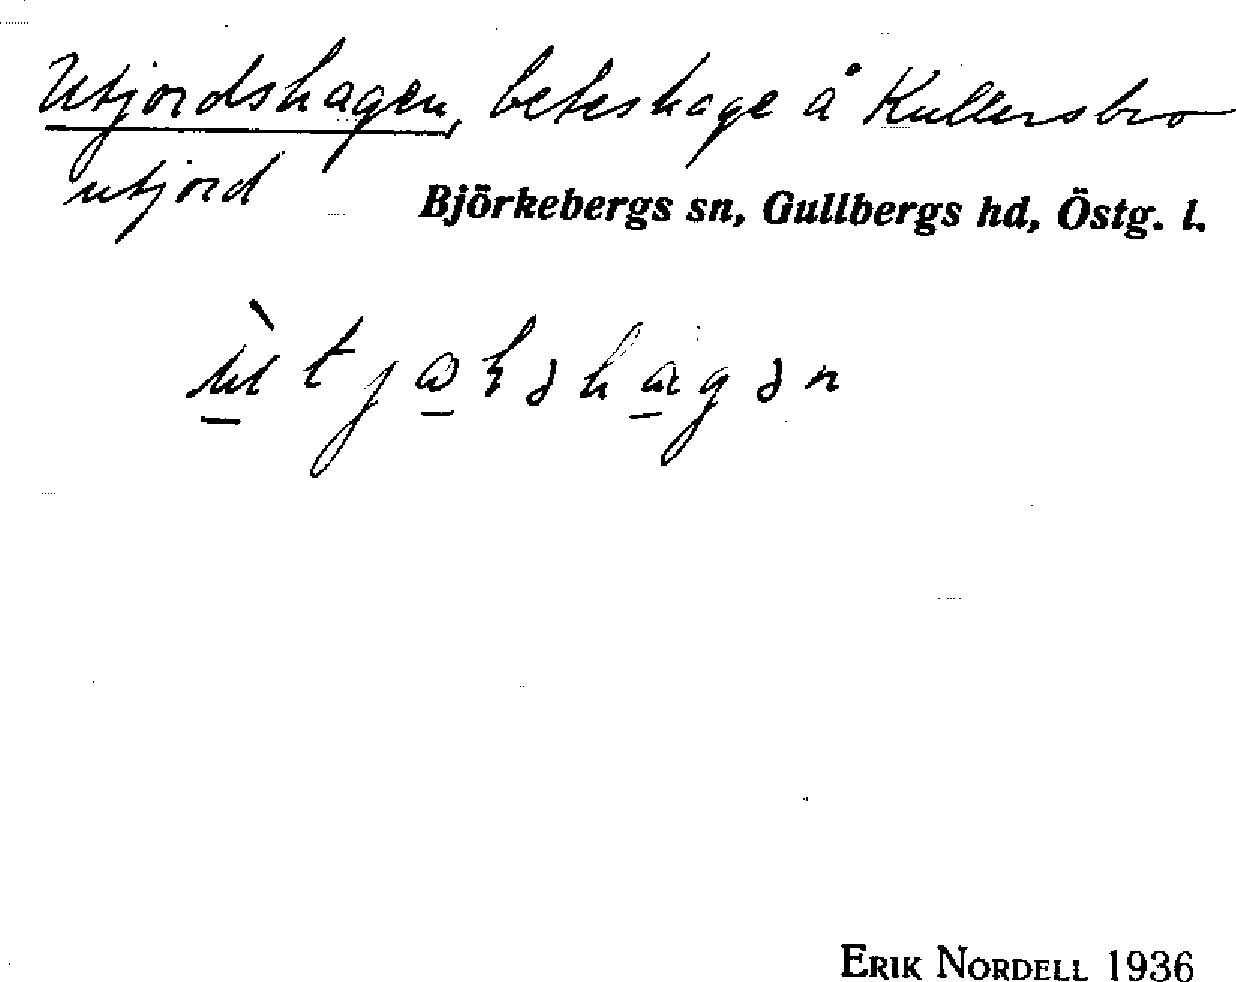 Utjordshagen, beteshage å Kullersbro
utjord Björkebergs sn, Gullbergs hd, Östg. l.
ERIK NORDELL 1936